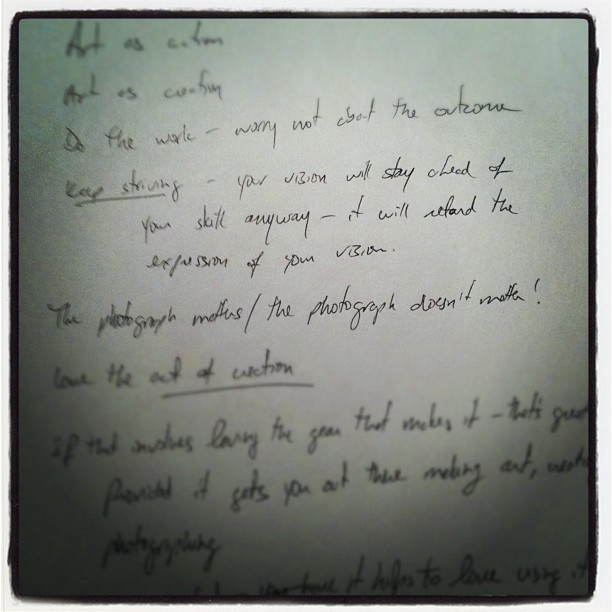 Art as action
Art as creation
Do the work - worry not about the outcome
Keep striving - your vision will stay ahead of
your skill anyway - it will retard the
expression of your vision.
The photograph matters / the photograph doesn't matter!
Love the act of creation.
if that involves loving the gear that makes it - that's great
Provided it gets you out there making art, creating
photographing
it helps to love using it